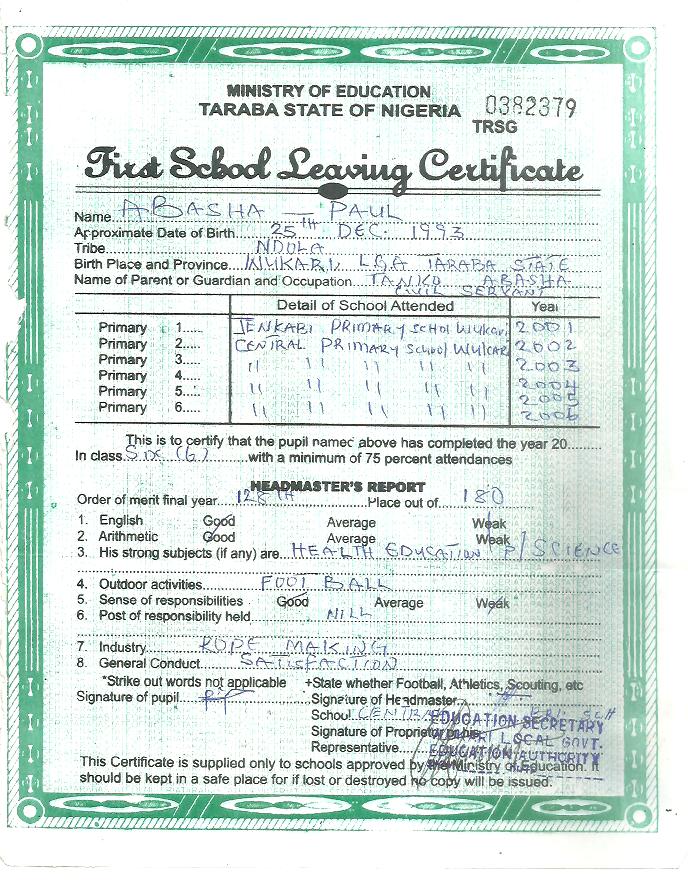 MINISTRY OF EDUCATION
TARABA STATE OF NIGERIA 0382379
TRSG
First School Leaving Certificate
Name ABASHA PAUL
Approximate Date of Birth 25TH DEC. 1993
Tribe NDOLA
Birth Place and Province WUKARI, LGA TARABA STATE
Name of Parent or Guardian and Occupation TANKO ABASHA
CIVIL SERVANT
Detail of School Attended Year
Primary 1..... PRIMARY SCHOL WUKARI 2001
Primary 2..... CENTRAL PRIMARY SCHOOL WUKARI 2002
Primary 3..... " " " " " 2003
Primary 4..... " " " " " 2004
Primary 5..... " " " " " 2005
Primary 6..... " " " " " 2006
This is to certify that the pupil named above has completed the year 20........
In class SIX (6) with a minimum of 75 percent attendances
HEADMASTER'S REPORT
Order of merit final year 128TH Place out of 180
1. English Good Average Weak
2. Arithmetic Good Average Weak
3. His strong subjects (if any) are HEALTH EDUCATION P/SCIENCE
4. Outdoor activities FOOT BALL
5. Sense of responsibilities Good Average Weak
6. Post of responsibility held NILL
7. Industry ROPE MAKING
8. General Conduct SATISFACTION
*Strike out words not applicable +State whether Football, Athletics, Scouting, etc
Signature of pupil Signature of Headmaster
School CENTRAL PRI. SCH
EDUCATION SECRETARY
Signature of Proprietor
WUKARI LOCAL GOVT.
Representative
EDUCATION AUTHORITY
This Certificate is supplied only to schools approved by the Ministry of Education. It
should be kept in a safe place for if lost or destroyed no copy will be issued.